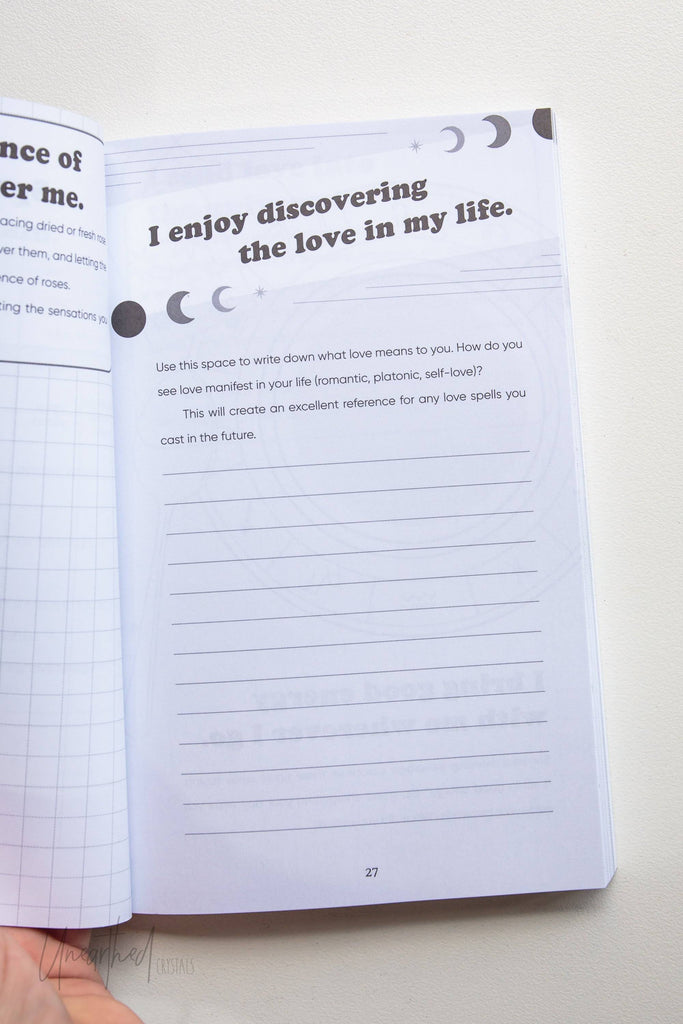 nce of
er me.
acing dried or fresh rose
ver them, and letting the
ence of roses.
ting the sensations you
I enjoy discovering
the love in my life.
Use this space to write down what love means to you. How do you
see love manifest in your life (romantic, platonic, self-love)?
This will create an excellent reference for any love spells you
cast in the future.
I bring good energy
with me wherever I go.
27
Unearthed
CRYSTALS